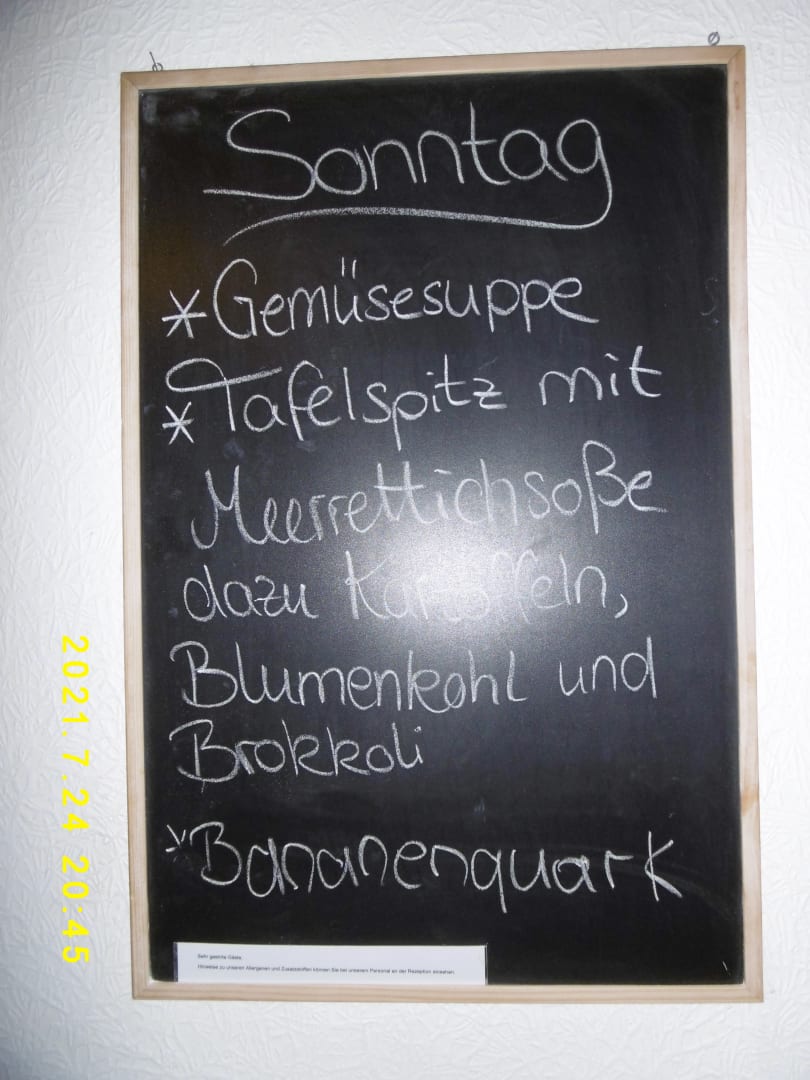 Sonntag
*Gemüsesuppe
*Tafelspitz mit
Meerrettichsoße
dazu Kartoffeln,
Blumenkohl und
Brokkoli
*Bananenquark
Sehr geehrte Gäste,
Hinweise zu unseren Allergenen und Zusatzstoffen können Sie bei unserem Personal an der Rezeption einsehen.
2021.7.24 20:45